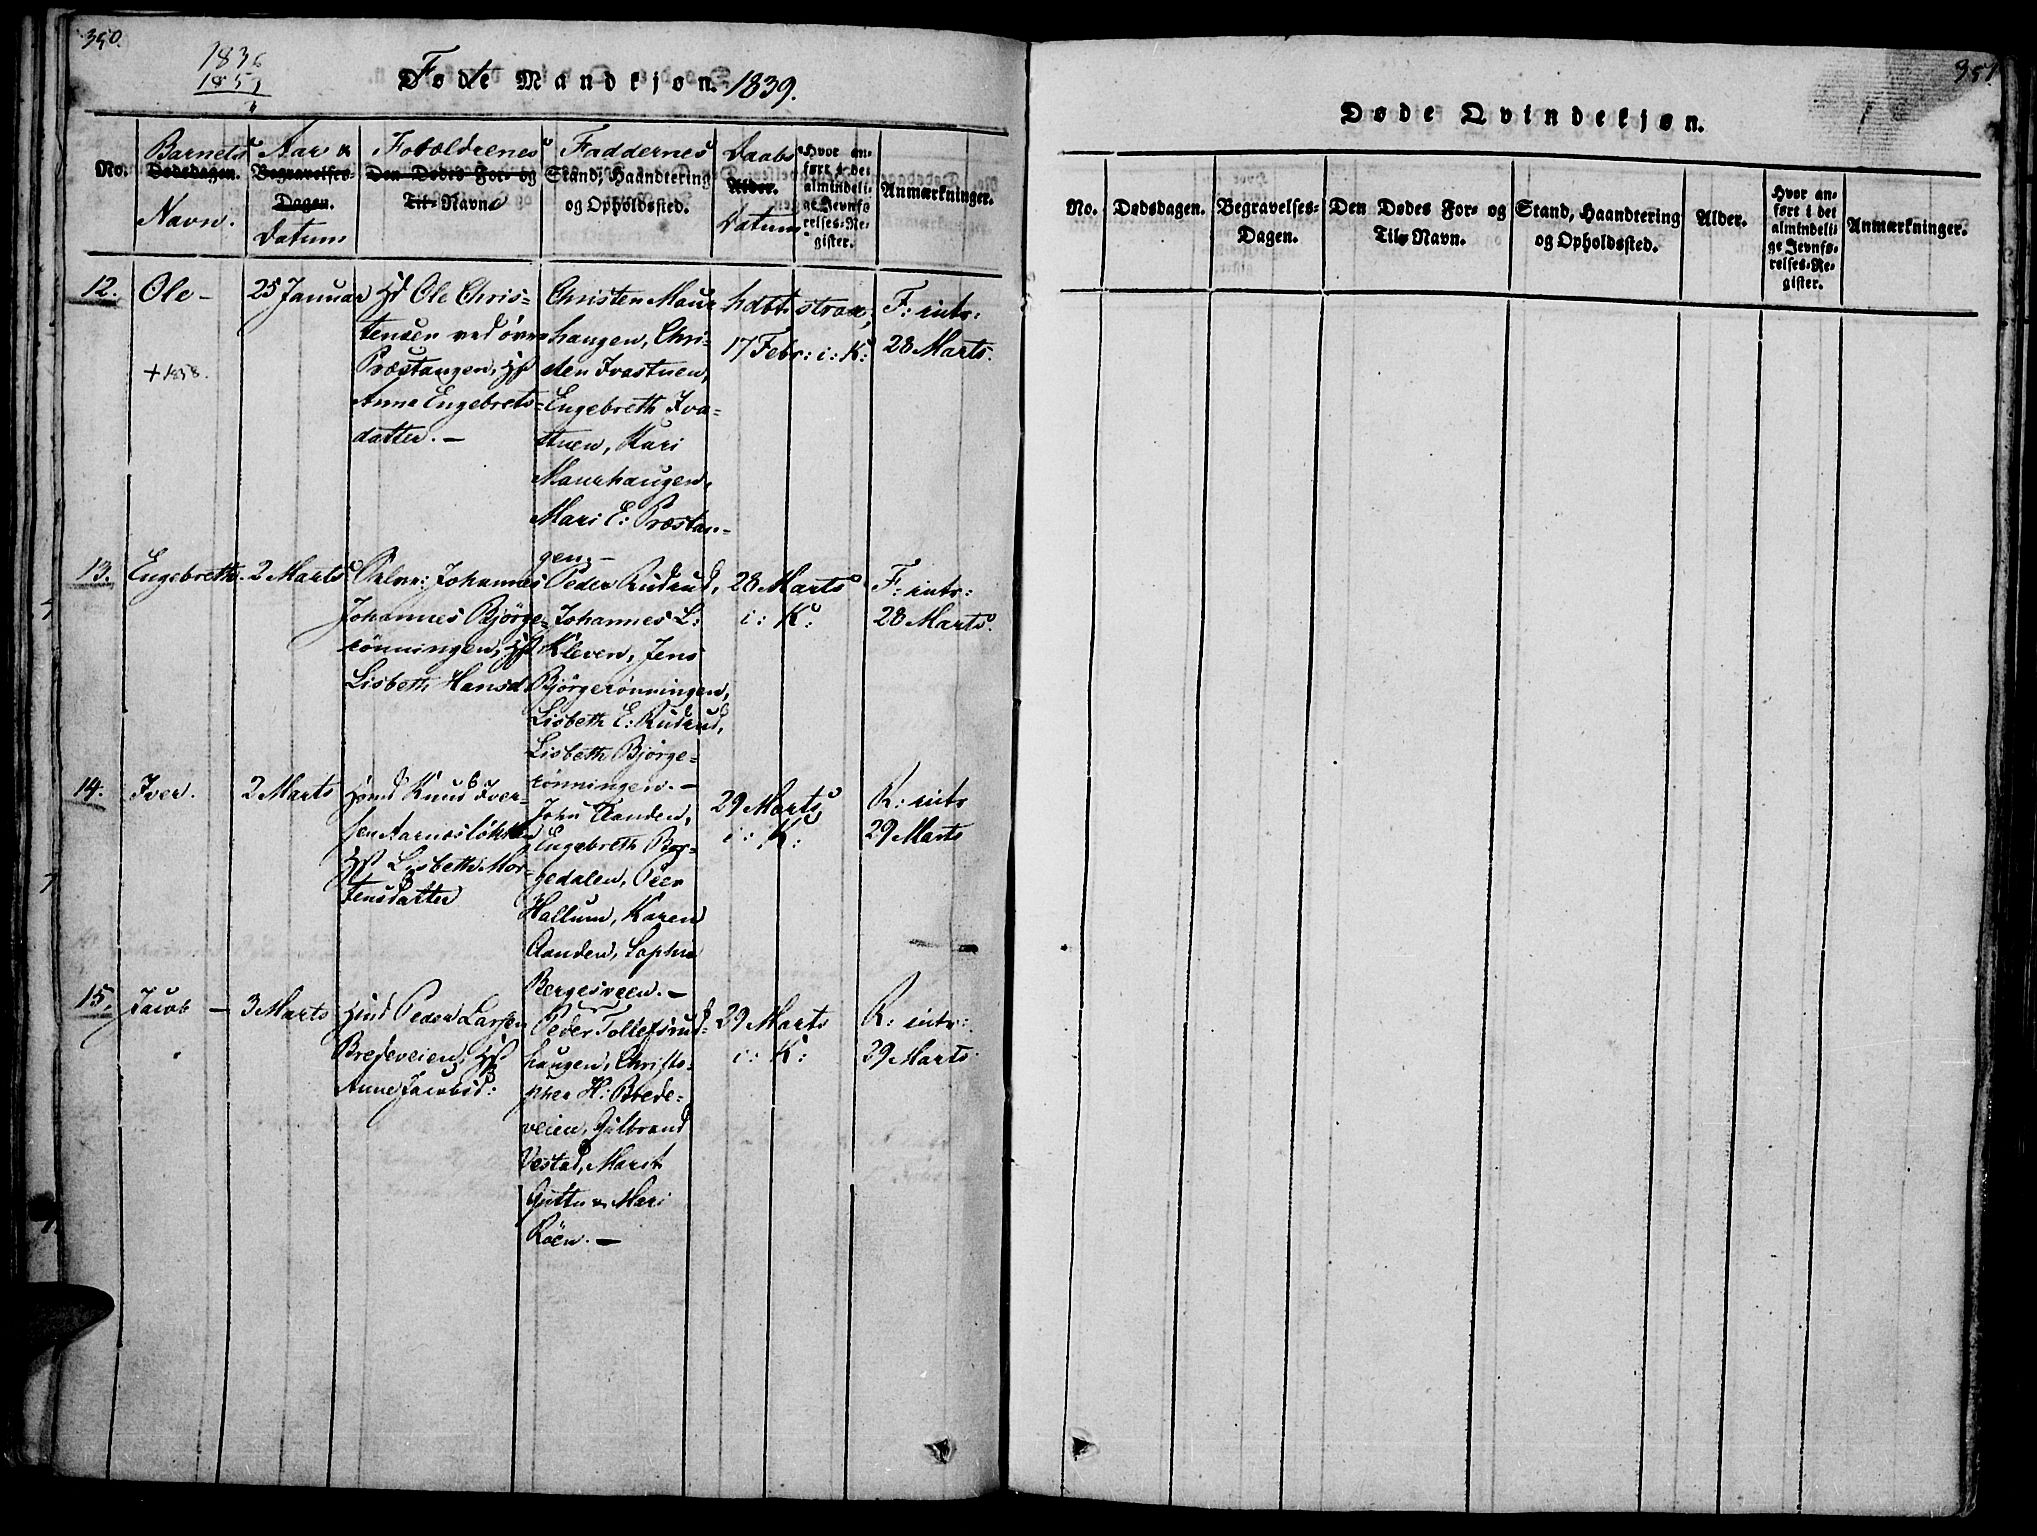 350.
1836
1851
Fødte Mandkjøn. 1839.
No.
Barnets
Dødsdagen.
Navn.
Aar &
Begravelses-
Dagen.
Datum
Forældrenes
Den Dødes For- og
Til-Navne
Faddernes
Stand, Haandtering
og Opholdssted.
Daabs
Alder.
Datum
Hvor an-
ført i det
almindeli-
ge Jevnfø-
relses-Re-
gister.
Anmærkninger.
12.
Ole -
+ 1858.
25 Januar
Ole Chris-
tensen ved øvre
Præstangen,
Anna Engebrets-
datter. -
Christen Maur
haugen, Chri-
sten Ivastuen,
Engebreth Iva-
stuen, Kari
Maurhaugen,
Mari E: Præstan-
gen. -
hdbt. strax,
17 Febr: i: K:
F: intr:
28 Marts.
13.
Engebreth.
2 Marts
Johannes
Johannes Bjørge-
rønningen,
Lisbeth Hansd
Peder Rudrud,
Johannes L:
Kleven, Jens
Bjørgerønningen,
Lisbeth E: Rudrud,
Lisbeth Bjørge-
rønningen. -
28 Marts
i: K:
F: intr:
28 Marts.
14.
Iver.
2 Marts
Knud Iver-
sen Aarnesløkken
Lisbeth Mor-
tensdatter
John Aanden,
Engebreth Ber-
gedalen, Peer
Hallum, Karen
Aanden, Sophie
Bergesveen. -
29 Marts
i: K:
R: intr
29 Marts
15.
Jacob -
3 Marts
Peder Larsen
Bredeveien,
Anne Jacobsd:
Peder Tollefsrud-
haugen, Christo-
pher H: Brede-
veien, Gulbrand
Vestad, Marit
Guttu & Mari
Røen. -
29 Marts
i: K:
R: intr:
29 Marts
351.
Døde Qvindekjøn.
No.
Dødsdagen.
Begravelses-
Dagen.
Den Dødes For- og
Til-Navn.
Stand, Haandtering
og Opholdssted.
Alder.
Hvor an-
ført i det
almindeli-
ge Jevnfø-
relses-Re-
gister.
Anmærkninger.